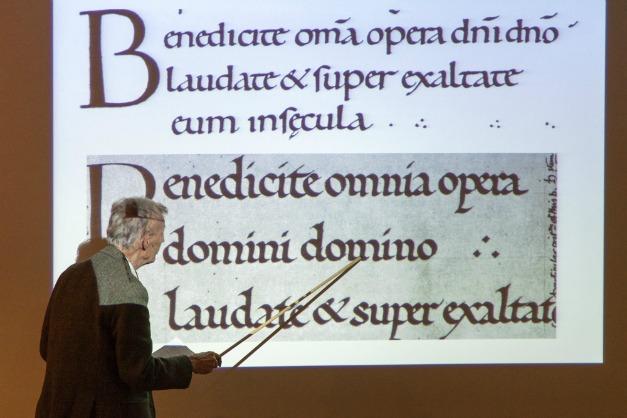 Benedicite om̄a op̄era dn̄i dn̄o
laudate & ſuper exaltate
eum inſęcula
Benedicite omnia opera
domini domino
laudate & super exaltat